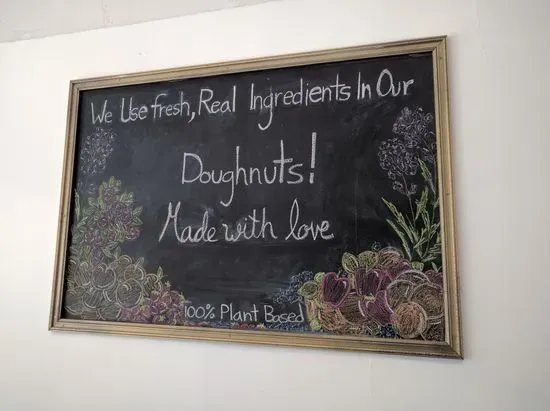 We Use fresh, Real Ingredients In Our
Doughnuts!
Made with love
100% Plant Based